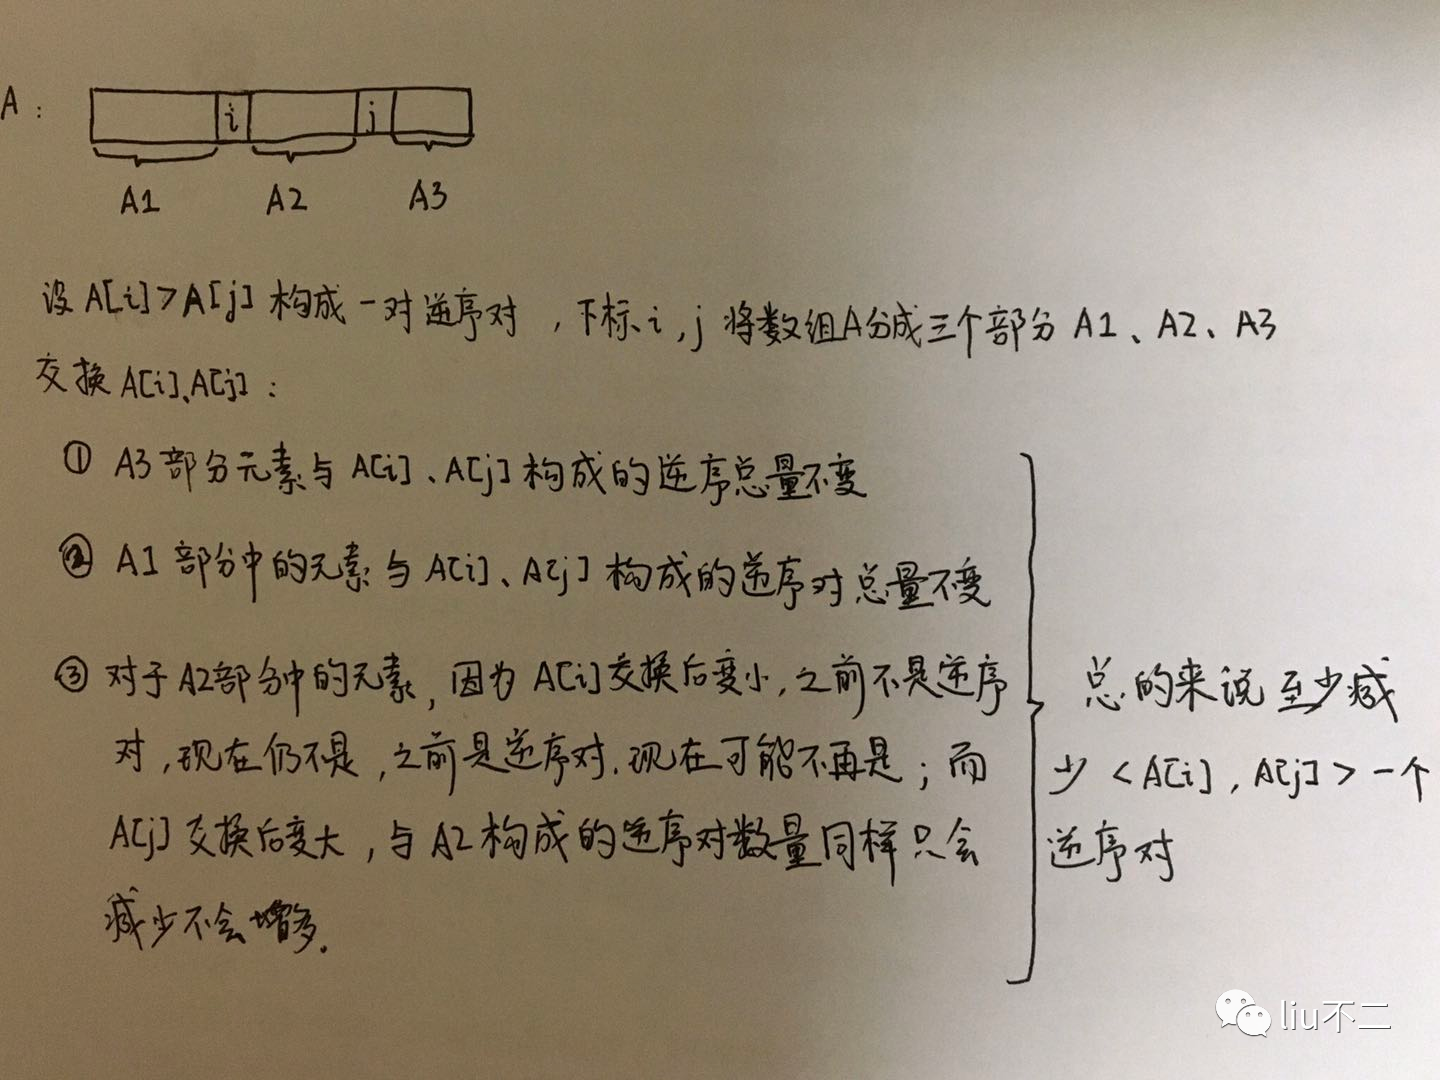 A：
i j
A1 A2 A3
设A[i]>A[j]构成一对逆序对，下标i,j将数组A分成三个部分A1、A2、A3
交换A[i]、A[j]：
① A3部分元素与A[i]、A[j]构成的逆序总量不变
② A1部分中的元素与A[i]、A[j]构成的逆序对总量不变
③ 对于A2部分中的元素，因为A[i]交换后变小，之前不是逆序
对，现在仍不是，之前是逆序对，现在可能不再是；而
A[j]交换后变大，与A2构成的逆序对数量同样只会
减少不会增多.
总的来说至少减
少<A[i],A[j]>一个
逆序对
liu不二